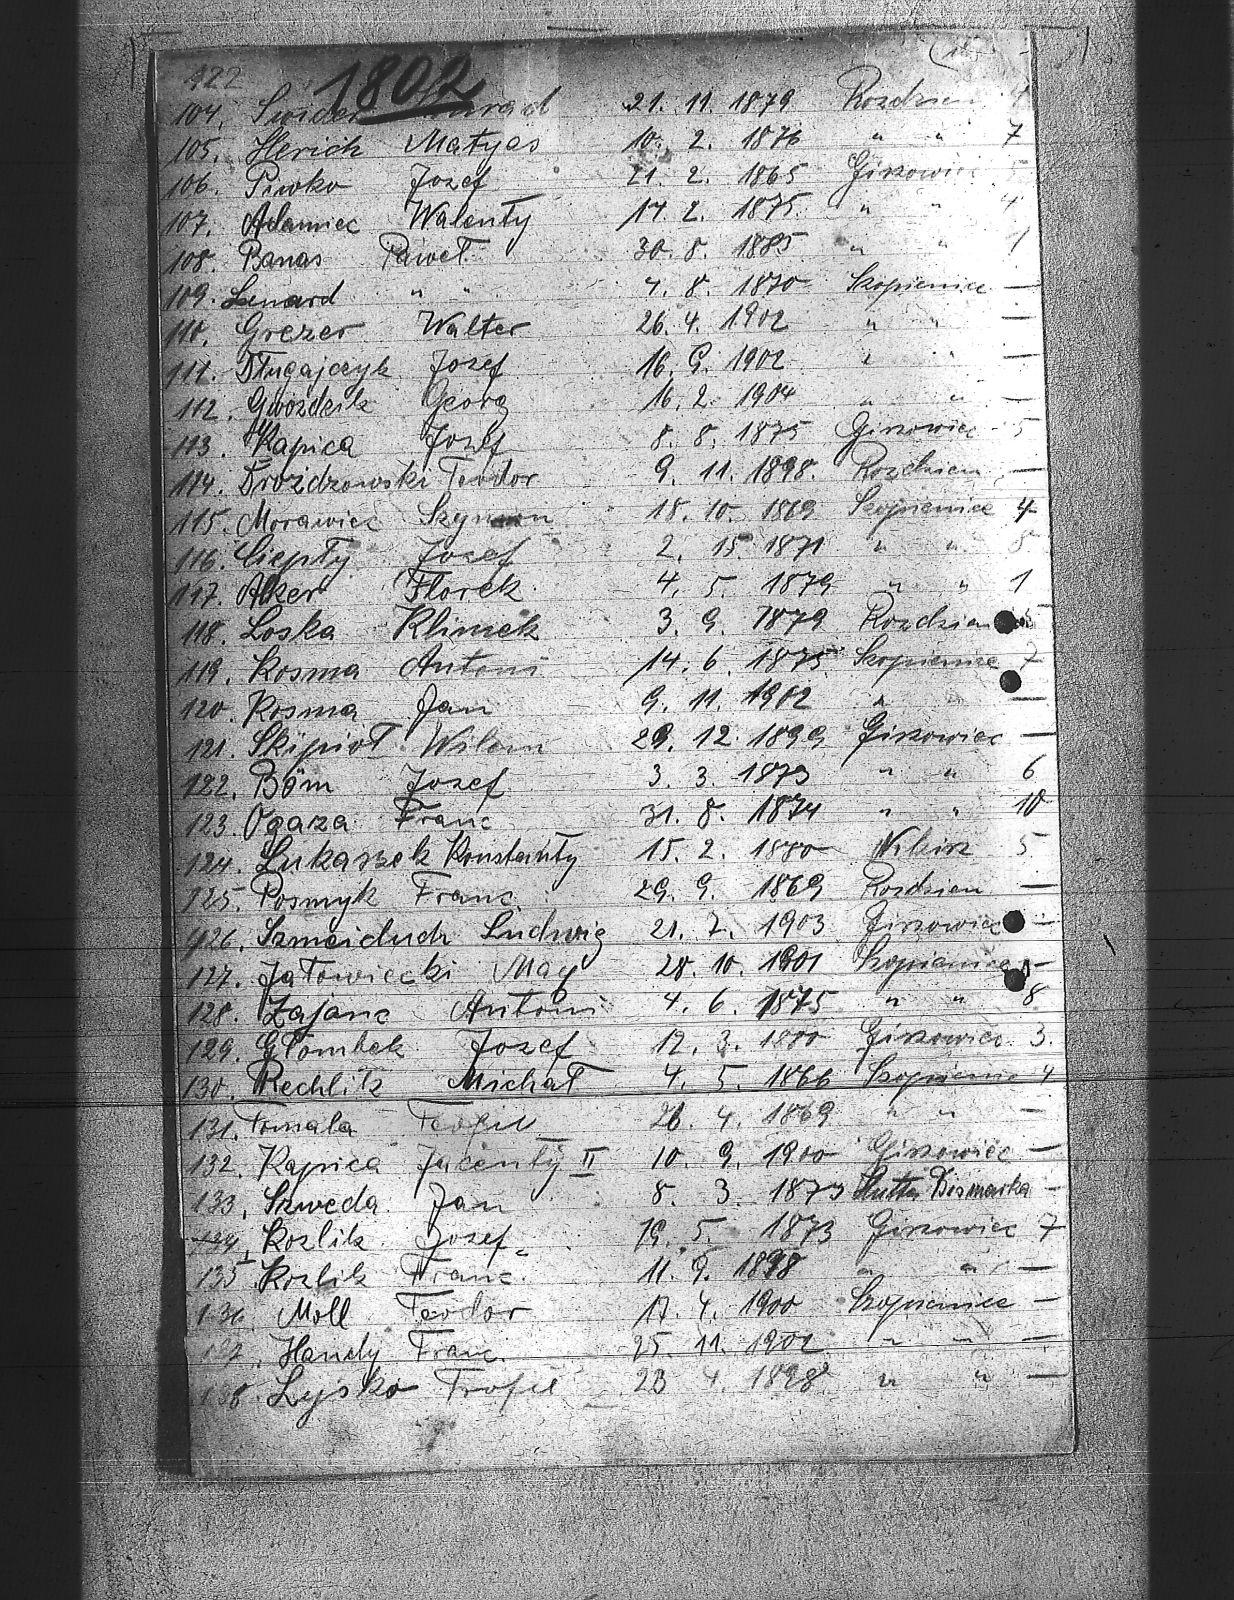 122 1802
104. Świder 21. 11. 1879 Rozdzien 4
105. Herich Matyas 10. 2. 1876 " " 7
106. Piwko Jozef 21. 2. 1865 Giszowiec 5
107. Adamiec Walenty 14. 2. 1875 " " 4
108. Banas Paweł 30. 8. 1885 " " 1
109. Lenard " " 4. 8. 1870 Szopienice —
110. Grezer Walter 26. 4. 1902 " " —
111. Długajczyk Jozef 16. 9. 1902 " " —
112. Gwoździk Georg 16. 2. 1904 " " —
113. Kapica Jozef 8. 8. 1875 Giszowiec 5
114. Drozdzowski Teodor 9. 11. 1898. Rozdzien —
115. Morawiec Szymon 18. 10. 1869 Szopienice 4
116. Ciepły Jozef 2. 15 1871 " " 8
117. Alker Florek 4. 5. 1879 " " 1
118. Loska Klimek 3. 9. 1879 Rozdzien 5
119. Kosma Antoni 14. 6. 1875 Szopienice 7
120. Kosma Jan 9. 11. 1902 " —
121. Skipioł Wilem 29. 12. 1899 Giszowiec —
122. Böm Jozef 3. 3. 1873 " " 6
123. Ogaza Franc 31. 8. 1874 " " 10
124. Lukaszek Konstanty 15. 2. 1880 Nikisz 5
125. Posmyk Franc. 29. 9. 1869 Rozdzien —
126. Szmeiduch Ludwig 21. 7. 1903 Giszowiec —
127. Jałowiecki May 28. 10. 1901 Szopienice —
128. Zajanc Antoni 4. 6. 1875 " " 8
129. Głombek Jozef 12. 3. 1880 Giszowiec 3.
130. Rechlitz Michał 4. 5. 1866 Szopienice 4
131. Tomala Teofil 26. 4. 1869 " " —
132. Kapica Jacenty II 10. 9. 1900 Giszowiec —
133. Szweda Jan 8. 3. 1873 Hutta Bismarka —
134. Kozlik Jozef 19. 5. 1873 Giszowiec 7
135 Kozlik Franc. 11. 9. 1898 " " —
136 Moll Teodor 17. 4. 1900 Szopienice —
137. Handy Franc. 25. 11. 1902 " " —
138. Lysko Trofil 23 4. 1898 " " —